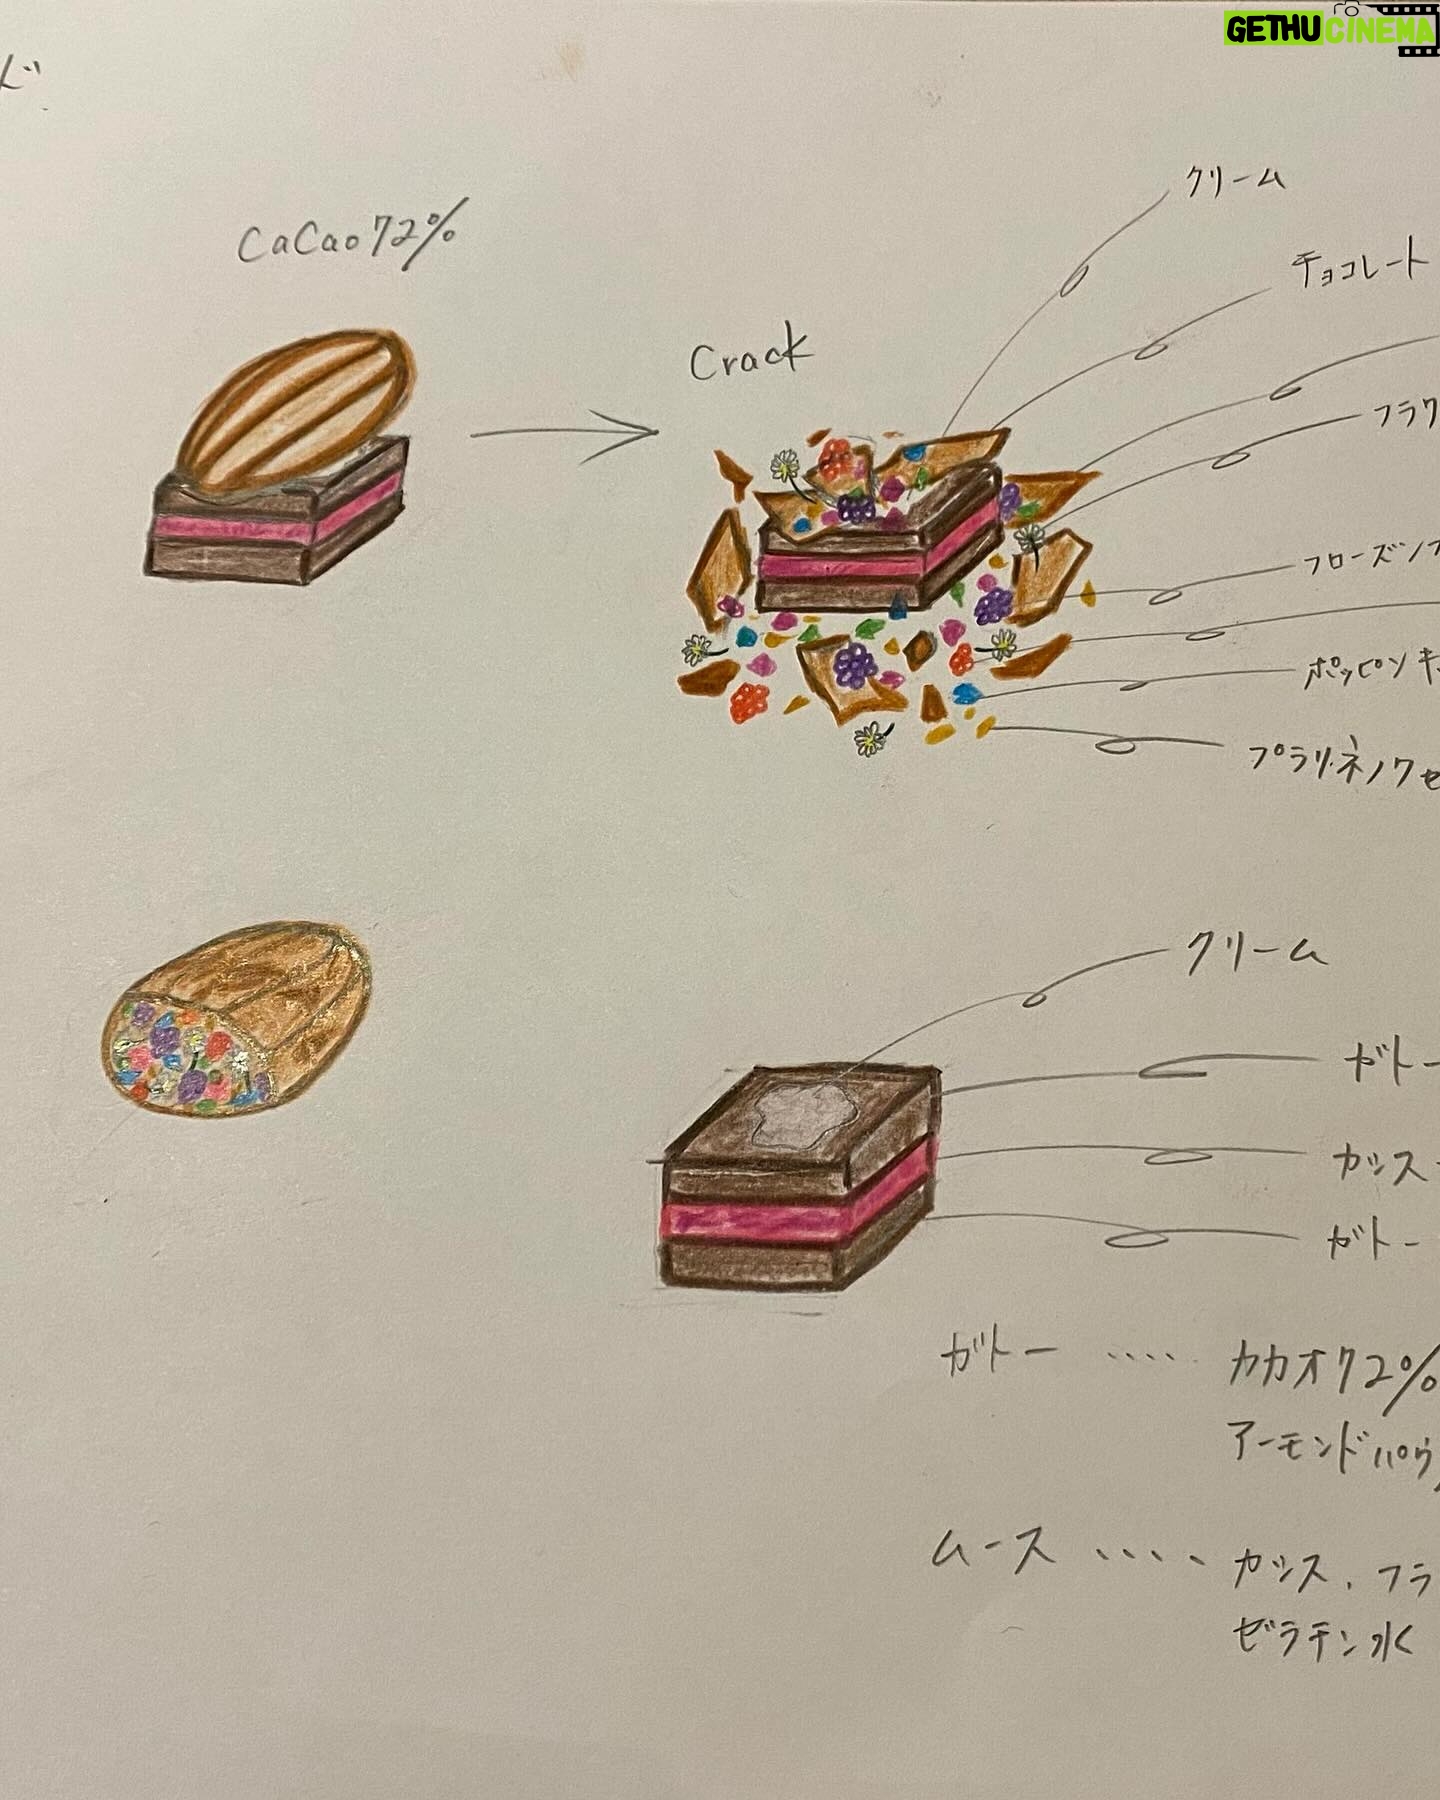 GETHUCINEMA
ド
クリーム
CaCao72%
チョコレート
Crack
フラワ
フローズンフ
ポッピンキ
プラリネノワゼ
クリーム
ガトー
カシス
ガトー
ガトー ‥‥ カカオ72%
アーモンドパウ
ムース ‥‥ カシス、フラ
ゼラチン水